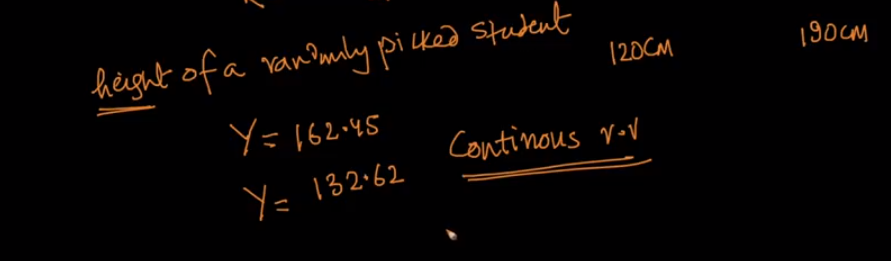 height of a randomly picked student 120CM 190CM
Y = 162.45
Continous r.v
Y = 132.62